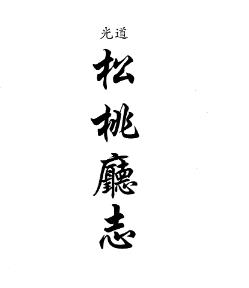 光道
松桃廳志